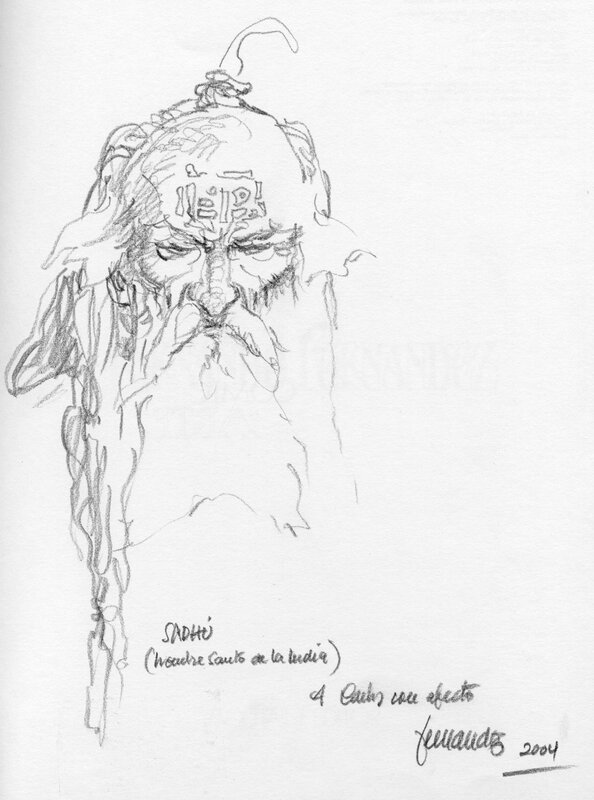 SADHÚ
(hombre Santo de la India)
A Carlos con afecto
Fernandez 2004